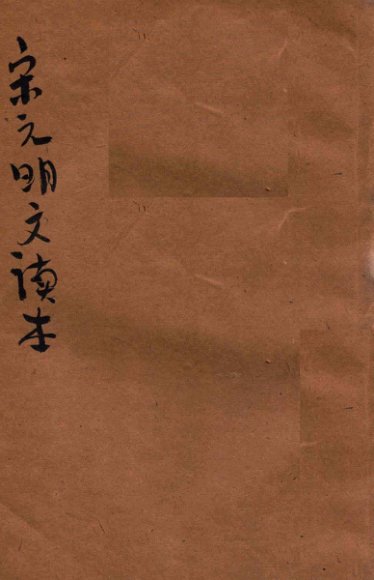 宋元明文读本